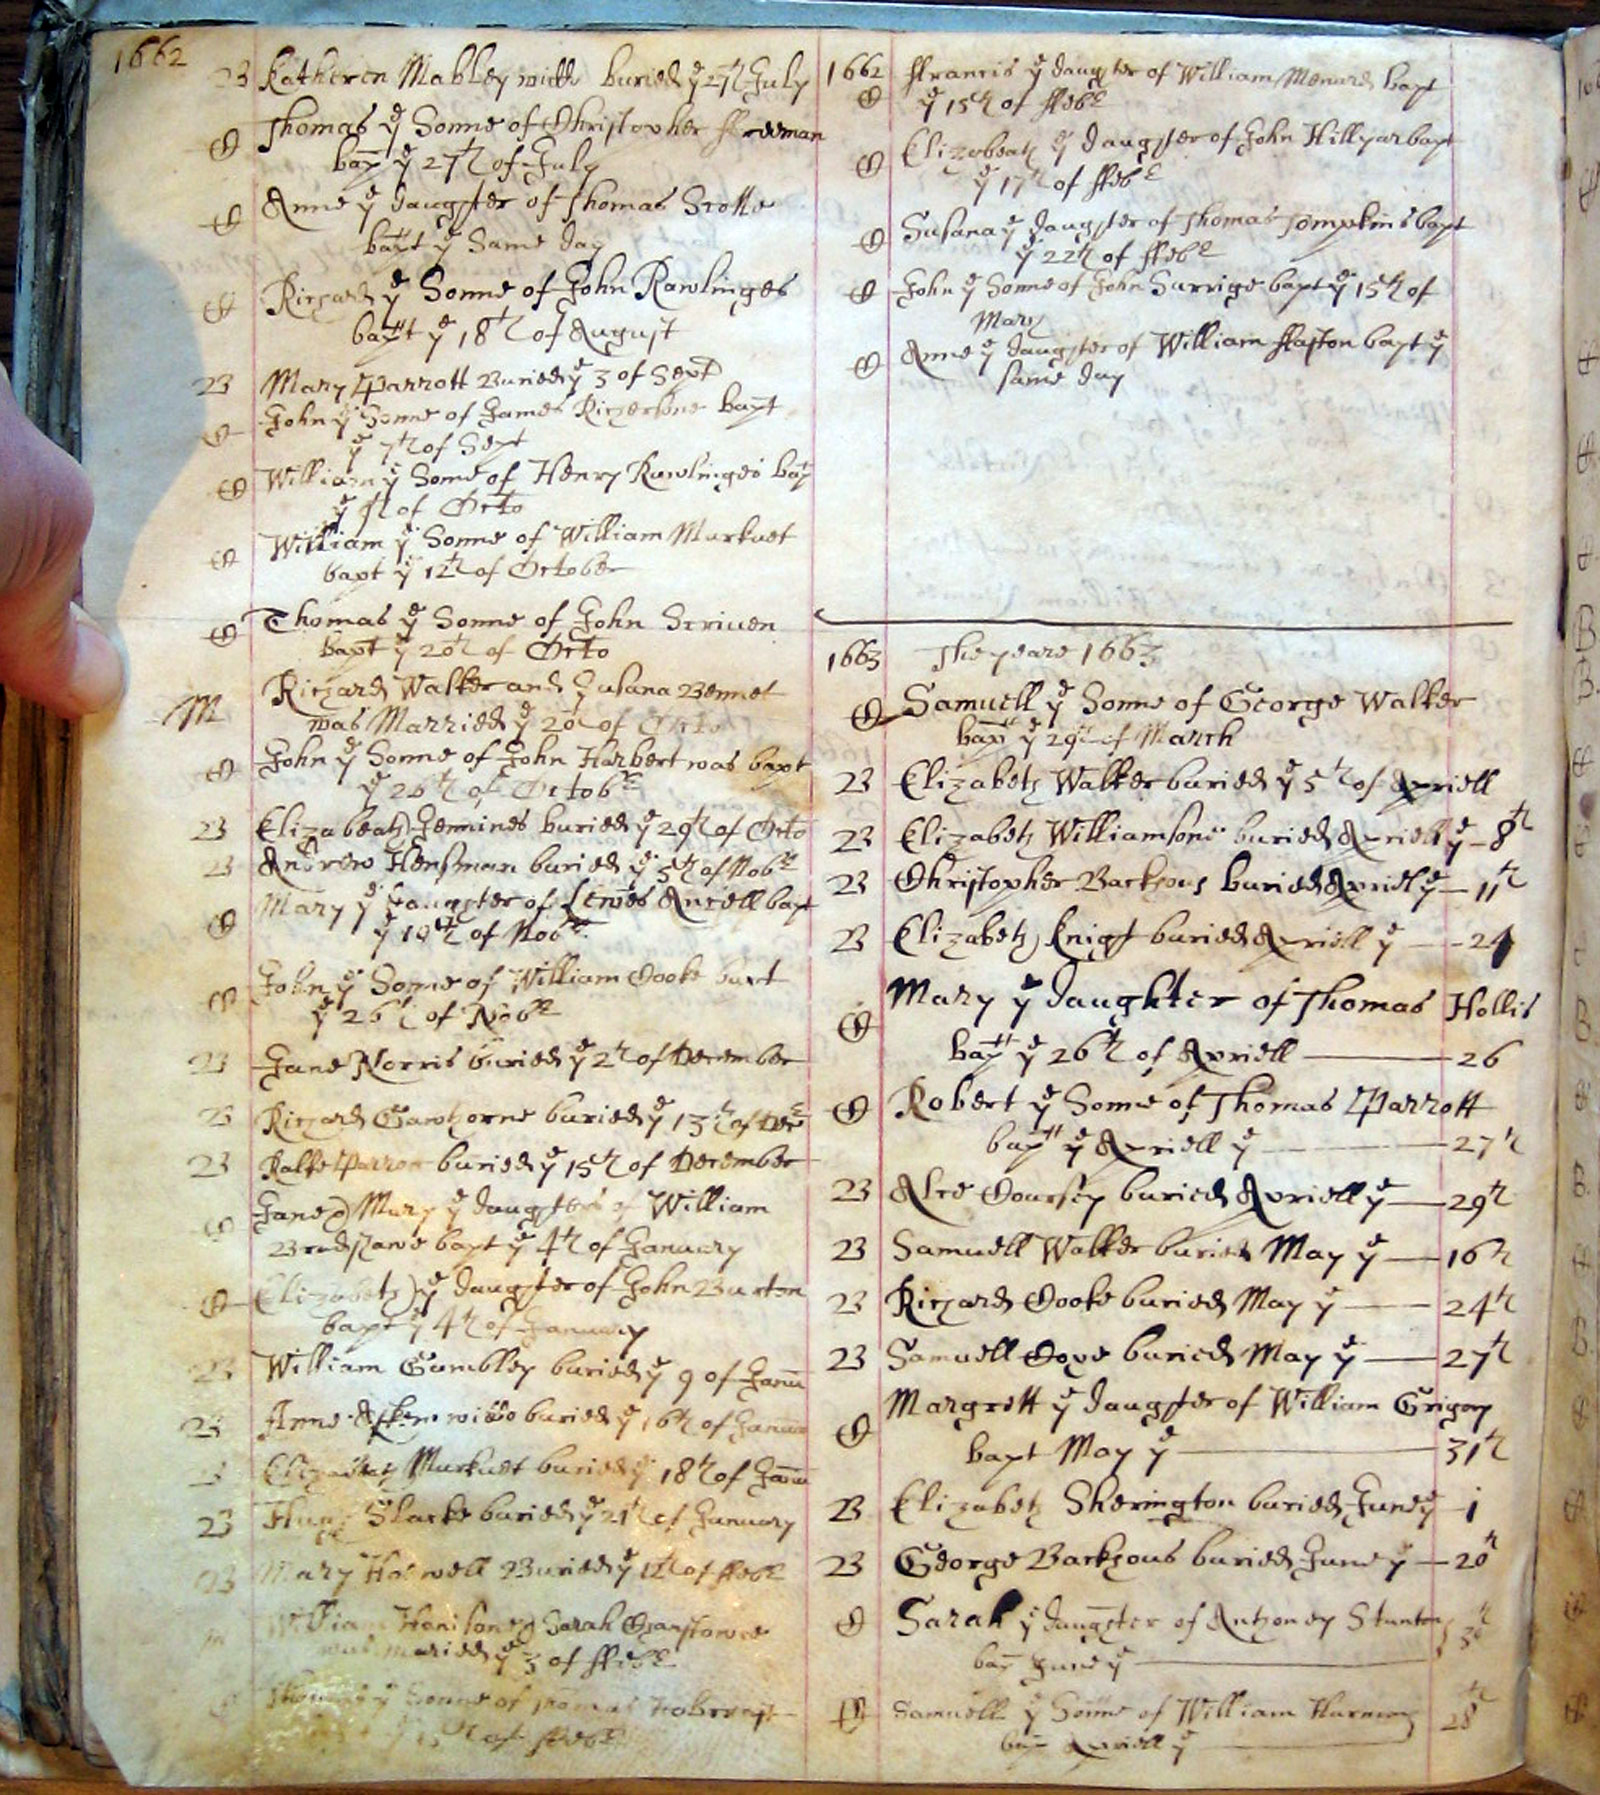 1662
B Katheren Mabley widd buried yͤ 27th July
Thomas yͤ Sonne of Christopher ffreeman
bap yͤ 27th of July
Anne yͤ daughter of Thomas Scotte
bapt yͤ Same day
Richard yͤ Sonne of John Rawlinges
bapt yͤ 18th of August
B Mary Parrott Buried yͤ 3 of Sept
John yͤ Sonne of James bapt
yͤ 7th of Sept
William yͤ Sonne of Henry Rawlinges bap
yͤ of Octo
William yͤ Sonne of William Markuet
bapt yͤ 12th of October
Thomas yͤ Sonne of John Scriuen
bapt yͤ 20th of Octo
M Richard Walker and Susana Bennet
was Married yͤ 20 of Octo
John yͤ Sonne of John Harbert was bapt
yͤ 26th of Octobr
B Elizabeath Jennines buried yͤ 29th of Octo
B Andrew Hensman buried yͤ 5th of Nobr
Mary yͤ daughter of Lewes bapt
yͤ 10th of Nobr
John yͤ Sonne of William Cooke bapt
yͤ 26th of Nobr
B Jane Norris buried yͤ 2th of December
B Richard Gawthorne buried yͤ 13th of Dec
B Ralfe Parrot buried yͤ 15th of December
Jane & Mary yͤ daughters of William
Bradshawe bapt yͤ 4th of January
Elizabeth yͤ daughter of John Burton
bapt yͤ 4th of January
B William Gumbley buried yͤ 9 of Janu
B Anne widdo buried yͤ 16th of Janu
B Elizabeth Markuet buried yͤ 18th of Janu
B Hugh Slacke buried yͤ 21th of January
B Mary Buried yͤ 12th of ffebr
M William & Sarah
was Maried yͤ 3 of ffebr
Thomas yͤ Sonne of Thomas
yͤ 15th of ffebr
1662 ffrancis yͤ daughter of William Menard bapt
yͤ 15th of ffebr
Elizabeath yͤ daughter of John Hillyar bapt
yͤ 17th of ffebr
Susana yͤ daughter of Thomas Tompkins bapt
yͤ 22th of ffebr
John yͤ Sonne of John Surrige bapt yͤ 15th of
March
Anne yͤ daughter of William fflaston bapt yͤ
same day
1663 The yeare 1663
Samuell yͤ Sonne of George Walker
bapt yͤ 29th of March
B Elizabeth Walker buried yͤ 5th of Apriell
B Elizabeth Williamsone buried Apriell yͤ 8th
B Christopher Backhous buried Apriel yͤ 11th
B Elizabeth Knight buried Apriell yͤ 24
Mary yͤ daughter of Thomas Hollis
bapt yͤ 26th of Apriell 26
Robert yͤ Sonne of Thomas Parrott
bapt yͤ Apriell yͤ 27th
B Alce buried Apriell yͤ 29th
B Samuell Walker buried May yͤ 16th
B Richard Cooke buried May yͤ 24th
B Samuell Cope buried May yͤ 27th
Margrett yͤ daughter of William Grigory
bapt May yͤ 31th
B Elizabeth Sherington buried June yͤ i
B George Backhous buried June yͤ 20th
Sarah yͤ daughter of Anthoney Stanton
bap June yͤ
Samuell yͤ Sonne of William Harmon
bap Apriell yͤ 28th